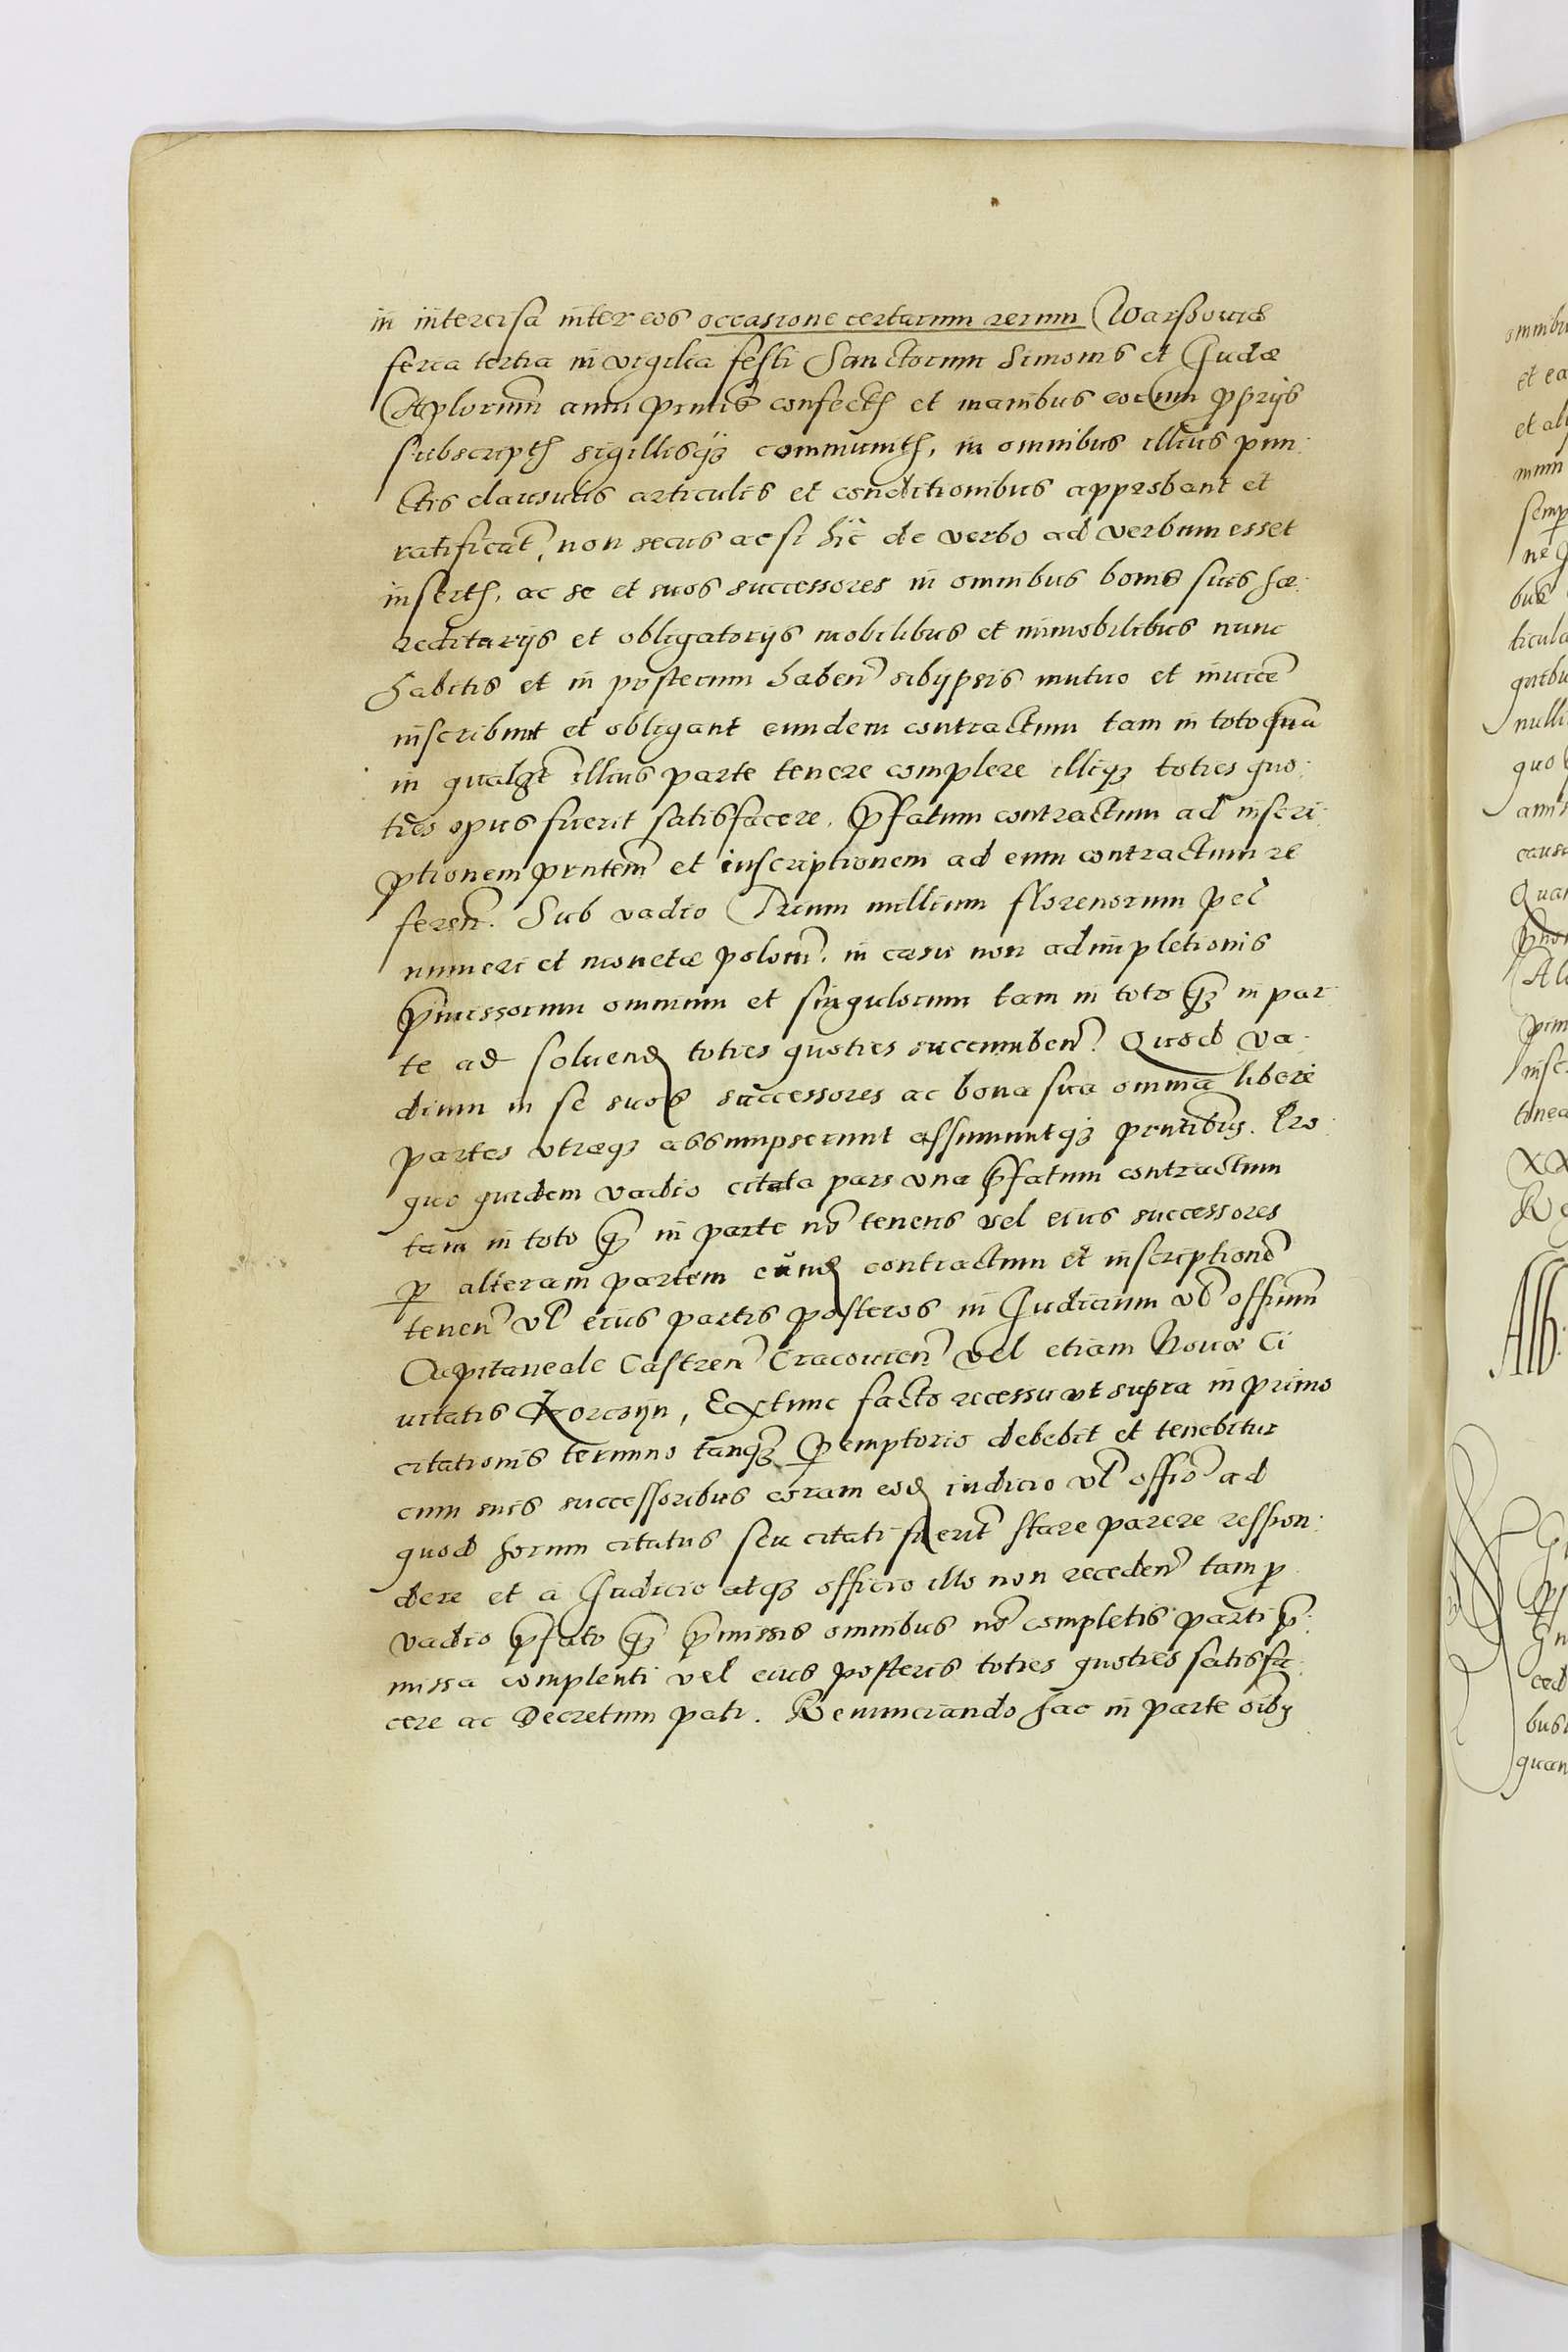 in intercisa inter eos occasione certarum rerum Warschouiæ
feria tertia in vigilia festi Sanctorum Simonis et Judæ
Aplorum anni pntis confect et manibus eorum pprijs
subscript sigillisq communit, in omnibus illius pun:
ctis clausulis articulis et conditionibus approbant et
ratificat, non secus ac si hic de verbo ad verbum esset
insert, ac se et suos successores in omnibus bonis suis hæ:
reditarijs et obligatorijs mobilibus et immobilibus nunc
habitis et in posterum haben sibijpsis mutuo et inuice
inscribunt et obligant eundem contractum tam in toto qua
in qualzt illius parte tenere complere illiq toties quo:
ties opus fuerit satisfacere. Pfatum contractum ad inscri:
ptionem pntem et inscriptionem ad eum contractum re
feren. Sub vadio Trium millium florenorum pec
numeri et monetæ polon. in casu non adimpletionis
pmissorum omnium et singulorum tam in toto q in par:
te ad soluend toties quoties succumben. Quod va:
dium in se suos successores ac bona sua omnia libere
partes vtræq assumpserunt assumuntq pntibus. Pro
quo quidem vadio citata pars vna pfatum contractum
tam in toto q in parte no tenens vel eius successores
p alteram partem eund contractum et inscriptione
tenen vl eius partis posteros in Judicium vl offium
Capitaneale Castren Cracouien vel etiam Nouæ Ci
uitatis Korczyn, Extunc facto recessu vt supra in primo
citationis termino tanq pemptorio debebit et tenebitur
cum suis successoribus coram eod iudicio vl offio ad
quod forum citatus seu citati fuerit stare parere respon:
dere et a Judicio atq officio illo non receden tam p
vadio pfato q pmissis omnibus no completis parti p:
missa complenti vel eius posteris toties quoties satisfa:
cere ac Decretum pati. Renunciando hac in parte oibus